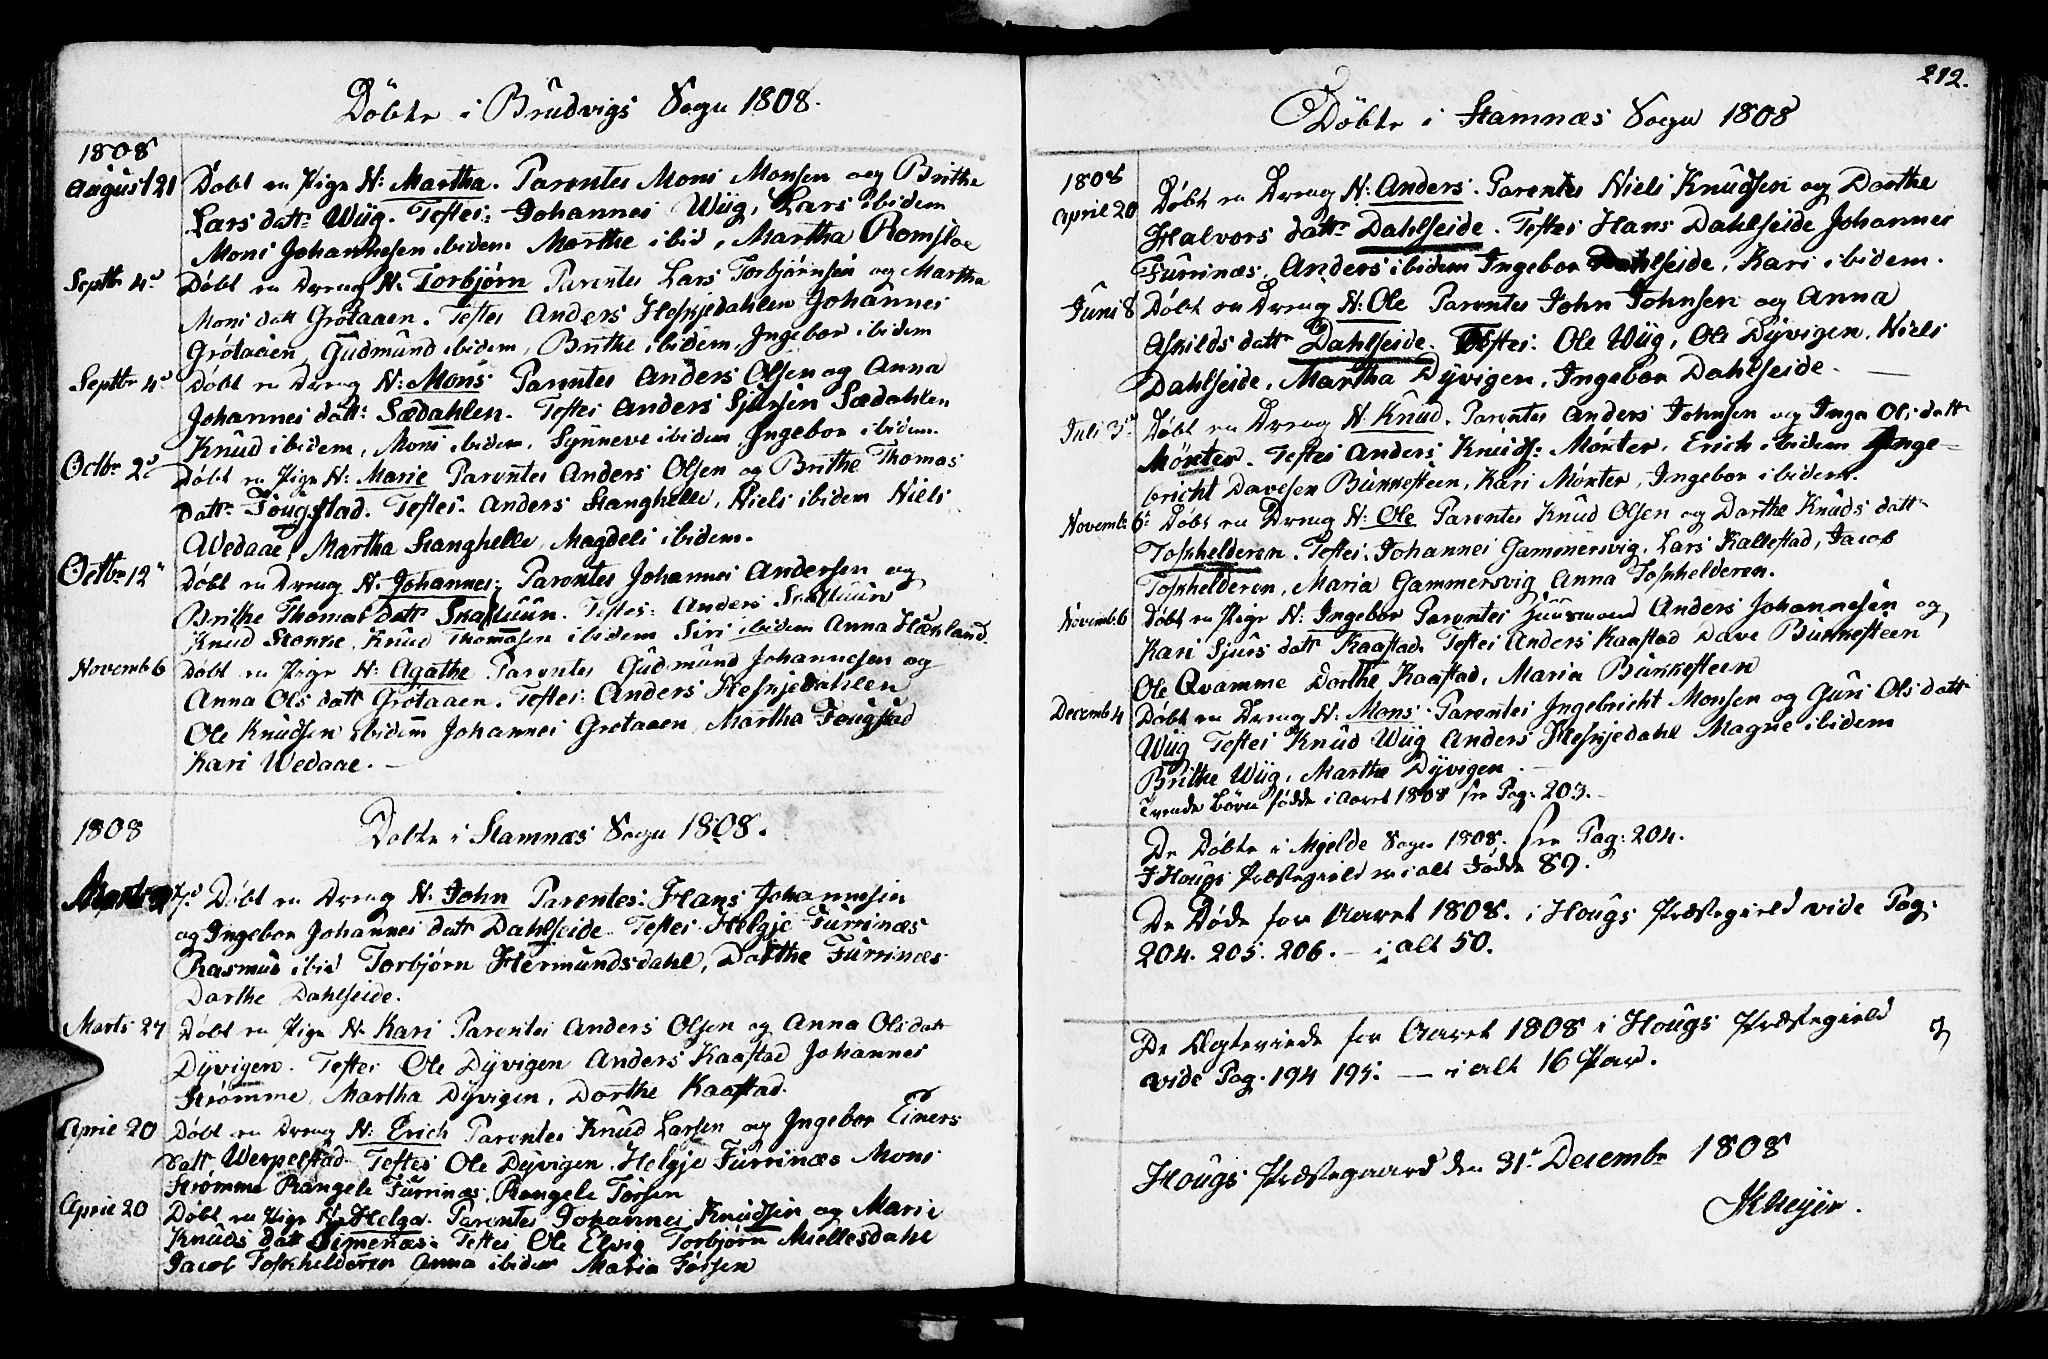 Döbte i Brudvigs Sogn 1808.
1808
August 21 Döbt en Pige N: Martha. Parentes Mons Monsen og Brithe
Lars datt: Wiig. Testes: Johannes Wiig, Lars ibidem
Mons Johannesen ibidem Marthe ibid, Martha Romsloe
Septbr 4d Döbt en Dreng N. Torbjörn Parentes Lars Torbjörnsen og Martha
Mons datt Grotaaen. Testes Anders Heskjedahlen Johannes
Grótaaen, Gudmund ibidem, Brithe ibidem, Ingebor ibidem
Septbr 4d Döbt en Dreng N: Mons Parentes Anders Olsen og Anna
Johannes datt: Sædahlen. Testes Anders Sjursen Sædahlen
Knud ibidem, Mons ibidem, Synneve ibidem Ingebor ibidem.
Octbr 2d Döbt en Pige N: Marie Parentes Anders Olsen og Brithe Thomas
datt: Fougstad. Testes. Anders Stanghelle, Niels ibidem Niels
Wedaae, Martha Stanghelle, Magdeli ibidem.
Octbr 12 Döbt en Dreng N. Johannes; Parentes Johannes Andersen og
Brithe Thomas datt Skaftuun. Testes: Anders Skaftuun
Knud Stokke, Knud Thomasen ibidem Siri ibidem Anna Hækland.
Novemb 6 Döbt en Pige N: Agathe Parentes Gudmund Johannesen og
Anna Ols datt Grotaaen. Testes: Anders Heskjedahlen
Ole Knudsen ibidem Johannes Grotaaen, Martha Fougstad
Kari Wedaae.
1808 Döbte i Stamnæs Sogn 1808.
7d Döbt en Dreng N. John Parentes: Hans Johannesen
og Ingebor Johannes datt Dahlseide. Testes Helgje Furrinæs
Rasmus ibid Torbjörn Hermundsdahl, Dorthe Furrinæs
Dorthe Dahlseide.
Marts 27 Döbt en Pige N. Kari Parentes Anders Olsen og Anna Ols datt
Dyvigen. Testes Ole Dyvigen Anders Kaastad Johannes
Strömme, Martha Dyvigen, Dorthe Kaastad.
April 20 Döbt en Dreng N: Erich Parentes Knud Larsen og Ingebor Einers
datt Werpelstad Testes Ole Dyvigen. Helgje Furrinæs Mons
Strömme Rangele Furrinæs, Rangele Forsen
April 20 Döbt en Pige N. Helga. Parentes Johannes Knudsen og Marie
Knuds datt Simenæs. Testes Ole Elvig Torbjörn Miellesdahl
Jacob Foskhelderen Anna ibidem Maria Forsen
212.
Döbte i Stamnæs Sogn 1808
1808
April 20 Döbt en Dreng N: Anders. Parentes Niels Knudsen og Dorthe
Halvors datt: Dahlseide. Testes Hans Dahlseide Johannes
Furrinæs, Anders ibidem Ingebor Dahlseide, Kari ibidem.
Juni 8 Döbt en Dreng N: Ole Parentes John Johnsen og Anna
Askilds datt: Dahlseide. Testes: Ole Wiig, Ole Dyvigen, Niels
Dahlseide, Martha Dyvigen, Ingebor Dahlseide.
Juli 3d Döbt en Dreng N. Knud. Parentes Anders Johnsen og Inga Ols datt
Mönter. Testes Anders Knuds: Mönter, Erich ibidem Inge-
bricht Davesen Bukkesteen, Kari Mönter, Ingebor ibidem.
Novemb. 6 Döbt en Dreng N: Ole Parentes Knud Olsen og Dorthe Knuds datt:
Foskhelderen. Testes. Johannes Gammersvig, Lars Kallestad, Jacob
Foskhelderen, Maria Gammersvig Anna Foskhelderen.
Novemb. 6 Döbt en Pige N. Ingebor Parentes Huusmand Anders Johannesen og
Kari Sjurs datt Kaastad. Testes Anders Kaastad Dave Bukkesteen
Ole Qvamme Dorthe Kaastad, Maria Bukkesteen
Decemb 4 Döbt en Dreng N. Mons. Parentes Ingebricht Monsen og Guri Ols datt
Wiig Testes Knud Wiig Anders Heskjedahl Magne ibidem
Brithe Wiig, Marthe Dyvigen.
Trende Börn födde i Aaret 1808 see Pag: 203.
De Döbte i Mjelde Sogn 1808. see Pag: 204.
I Hougs Præstegield er i alt Fødde 89.
De Døde for Aaret 1808. i Hougs Præstegield vide Pag:
204. 205. 206. — i alt 50.
De Ægteviede for Aaret 1808 i Hougs Præstegield
vide Pag. 194 195. — i alt 16 Par.
Hougs Præstegaard den 31te Decembr 1808